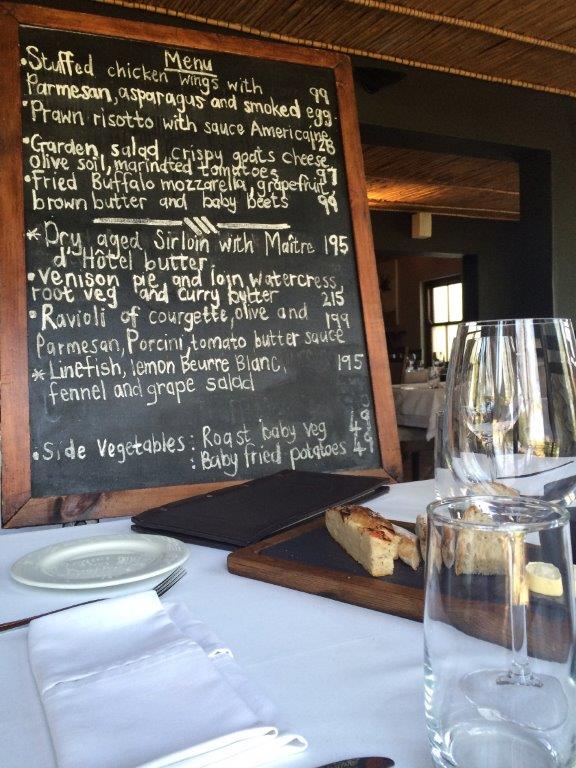 Menu
•Stuffed chicken wings with
Parmesan, asparagus and smoked egg 99
•Prawn risotto with sauce Americaine
128
•Garden salad crispy goats cheese,
olive soil, marindted tomatoes 97
•Fried Buffalo mozzarella, grapefruit,
brown butter and baby beets 99
*Dry aged Sirloin with Maitre 195
d'Hôtel butter.
•venison pie and loin, watercress,
root veg and curry butter 215
•Ravioli of courgette, olive and 199
Parmesan, Porcini, tomato butter sauce
*Linefish, lemon Beurre Blanc, 195
fennel and grape salad
•Side Vegetables: Roast baby veg 49
: Baby fried potatoes 49